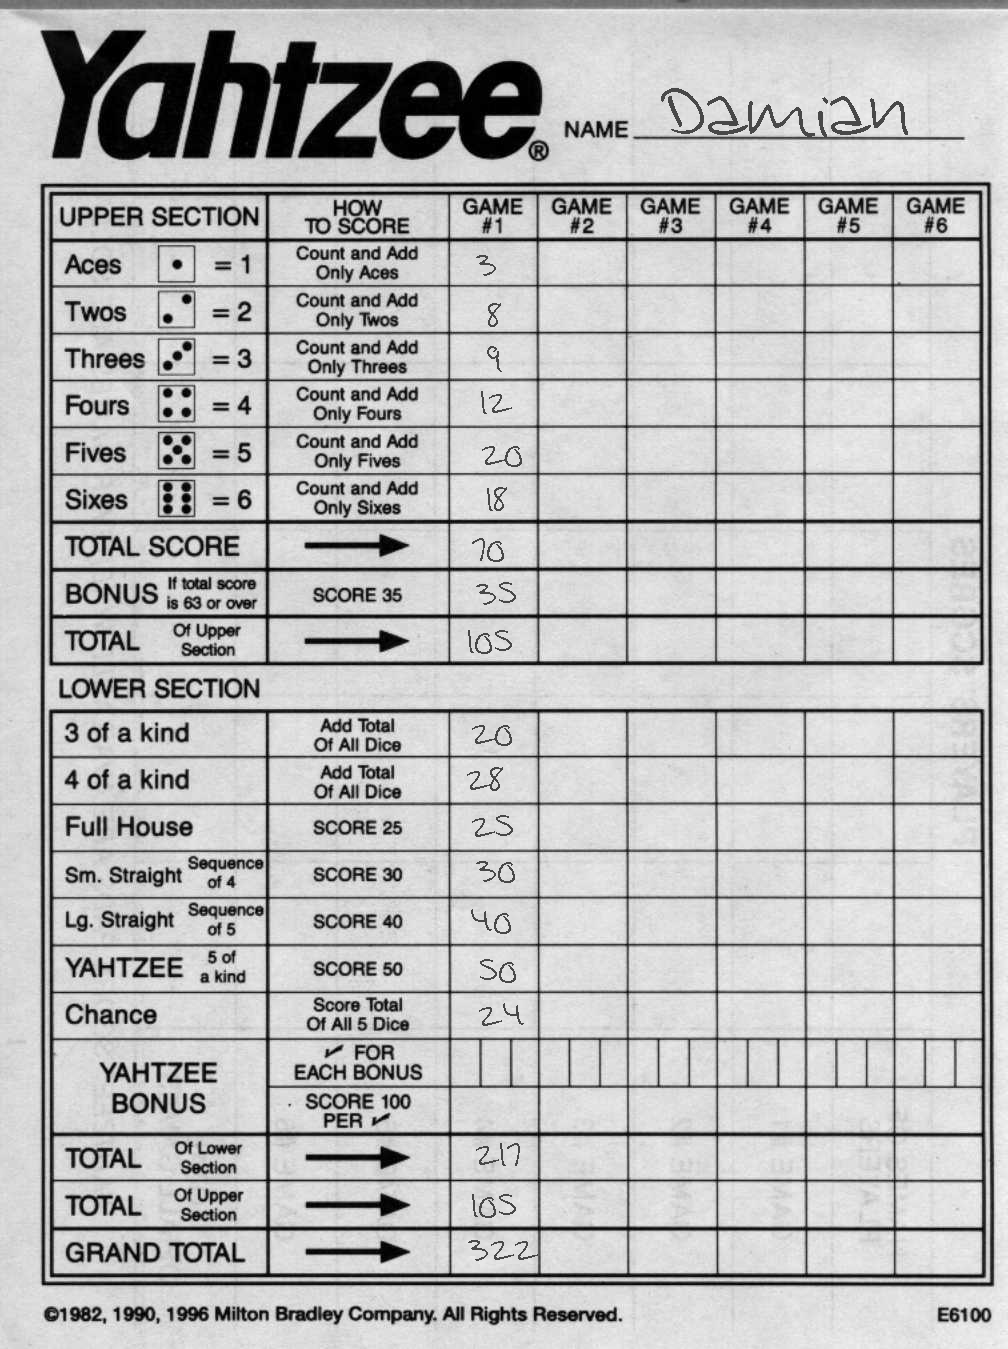 Yahtzee® NAME Damian
UPPER SECTION HOW TO SCORE GAME #1 GAME #2 GAME #3 GAME #4 GAME #5 GAME #6
Aces = 1 Count and Add Only Aces 3
Twos = 2 Count and Add Only Twos 8
Threes = 3 Count and Add Only Threes 9
Fours = 4 Count and Add Only Fours 12
Fives = 5 Count and Add Only Fives 20
Sixes = 6 Count and Add Only Sixes 18
TOTAL SCORE 70
BONUS If total score is 63 or over SCORE 35 35
TOTAL Of Upper Section 105
LOWER SECTION
3 of a kind Add Total Of All Dice 20
4 of a kind Add Total Of All Dice 28
Full House SCORE 25 25
Sm. Straight Sequence of 4 SCORE 30 30
Lg. Straight Sequence of 5 SCORE 40 40
YAHTZEE 5 of a kind SCORE 50 50
Chance Score Total Of All 5 Dice 24
YAHTZEE BONUS ✓ FOR EACH BONUS
SCORE 100 PER ✓
TOTAL Of Lower Section 217
TOTAL Of Upper Section 105
GRAND TOTAL 322
©1982, 1990, 1996 Milton Bradley Company. All Rights Reserved. E6100